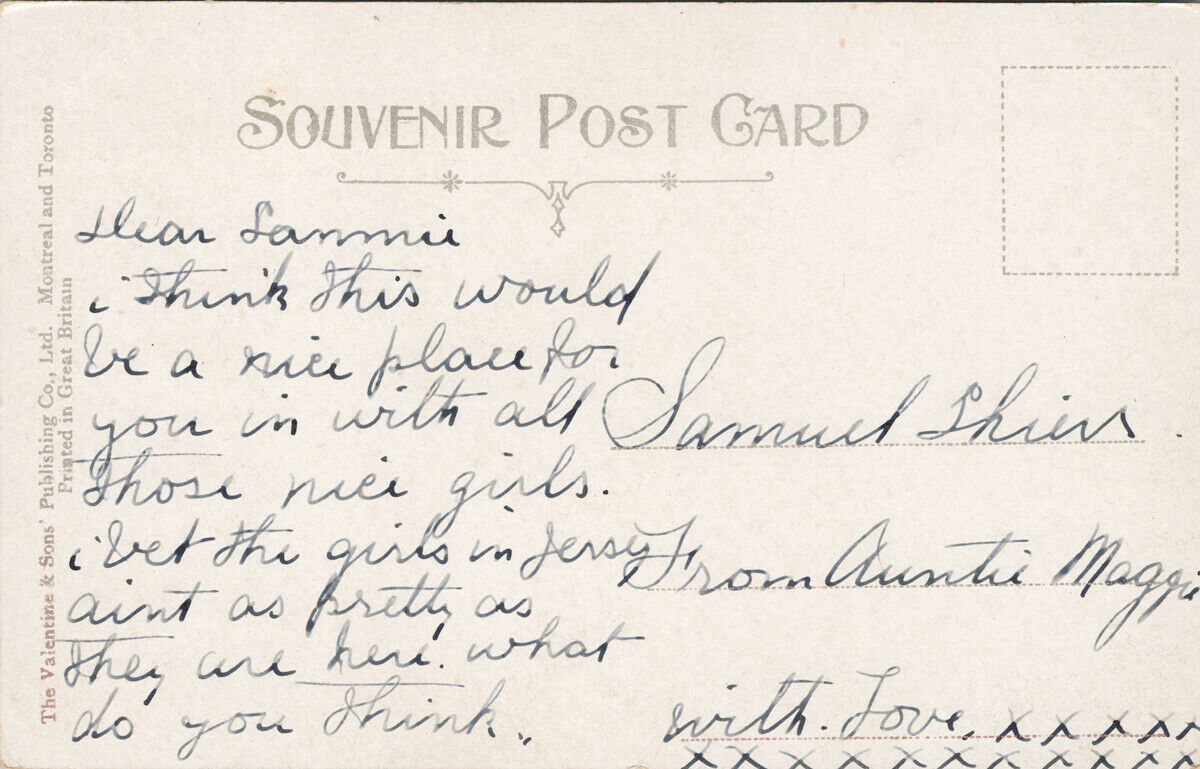 SOUVENIR POST CARD
The Valentine & Sons' Publishing Co., Ltd. Montreal and Toronto
Printed in Great Britain
Dear Sammie
i think this would
be a nice place for
you in with all
those nice girls.
i bet the girls in Jersey
aint as pretty as
they are here. what
do you think.
Samuel Shier
From Auntie Maggie
with. Love. x x x x x
x x x x x x x x x x x